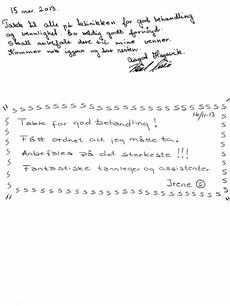 15 mar. 2013.
Takk til alle på klinikken for god behandling
og vennlighet. Er veldig godt fornøyd.
Skal anbefale dere til mine venner.
Kommer nok igjen og tar resten.
14/11-13
Takk for god behandling!
Fått ordnet alt jeg måtte ta.
Anbefales på det sterkeste!!!
Fantastiske tannleger og assistenter.
Irene ☺